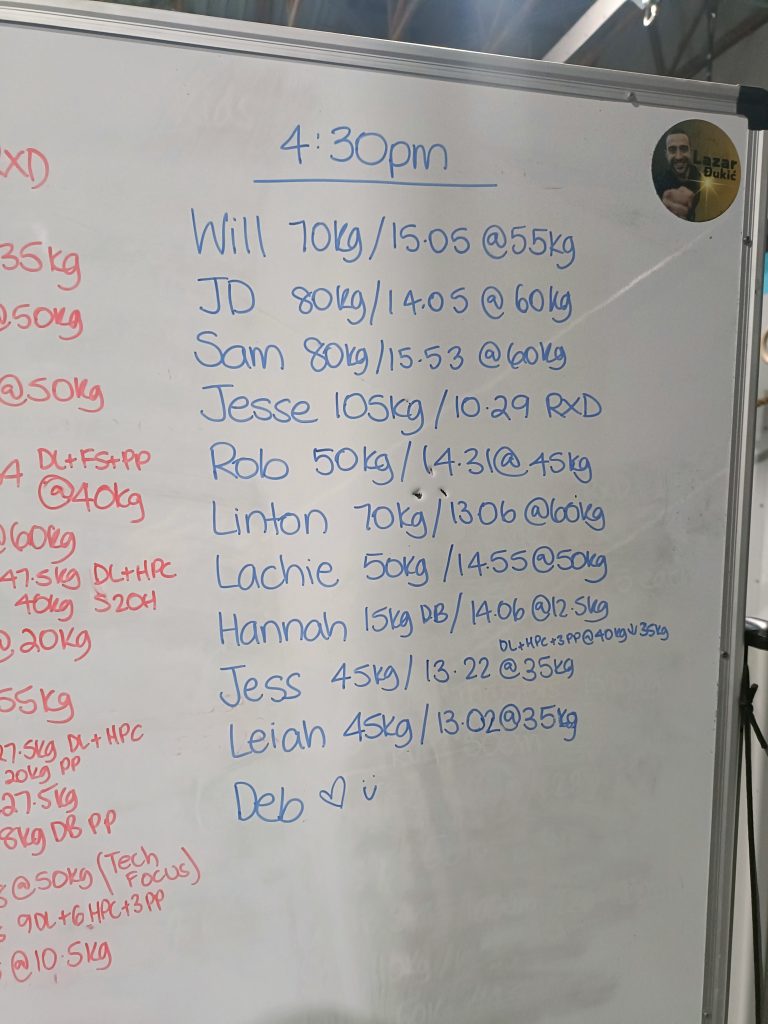 4:30pm
Lazar
Đukić
Will 70kg/15.05 @55kg
JD 80kg/14.05 @ 60kg
Sam 80kg/15.53 @60kg
Jesse 105kg/10.29 RXD
Rob 50kg/14.31@ 45kg
Linton 70kg/13.06 @60kg
Lachie 50kg /14.55@50kg
Hannah 15kg DB/ 14.06 @12.5kg
DL+HPC+3PP@40kg↓35kg
Jess 45kg/ 13.22 @35kg
Leiah 45kg/13.02@35kg
Deb ♡ ü
RXD
35kg
@50kg
@50kg
DL+FS+PP
@40kg
@60kg
47.5kg DL+HPC
40kg S2OH
@20kg
55kg
27.5kg DL+HPC
20kg PP
27.5kg
8kg DB PP
@50kg (Tech
Focus)
9DL+6HPC+3PP
@10.5kg